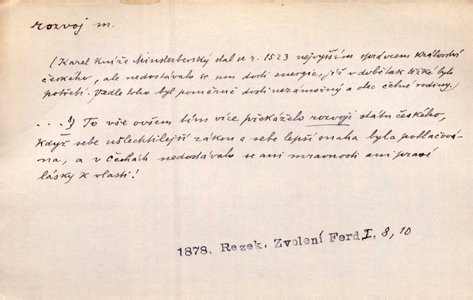 rozvoj m.
(Karel kníže Minsterberský stal se r. 1523 nejvyšším správcem království
českého, ale nedostávalo se mu dosti energie, jíž v době tak těžké bylo
potřebí. Vedle toho byl poměrně dosti nezámožný a otec četné rodiny.)
...!) To vše ovšem tím více překáželo rozvoji státu českého,
když sebe ušlechtilejší zákon a sebe lepší snaha byla potlačová-
na, a v Čechách nedostávalo se ani mravnosti ani pravé
lásky k vlasti!
1878. Rezek. Zvolení Ferd. I. 8, 10